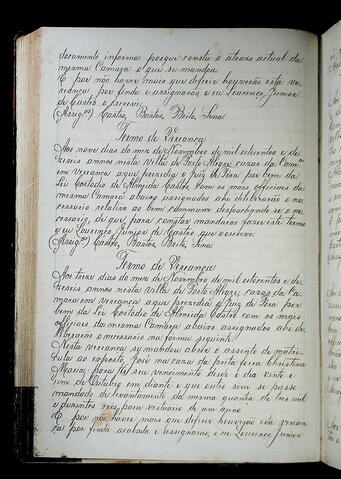 documento informa porque consta o atrazo actual da
mesma Camara o que se mandou
E por não haver mais que deferir houverão esta ve
reança por finda e assignarão e eu Lourenço Junior
de Castro o escrevi
(Assig.os) Castro, Bastos, Brito, Lima
Termo de Vereança
Aos nove dias do mez de Novembro de mil oitocentos e de
zeseis annos nesta villa de Porto Alegre cazas da Camª
em vereança aqui prezidio o Juiz de Fora por bem da
Lei Costodio de Almeida Castro, com os mais officiaes da
mesma Camara abaixo assignados ahi deliberarão o ne
cessario relativo ao bem commum despachando se o ne
cessario, de que para constar mandarão fazer este Termo
e eu Lourenço Junior de Castro que o escrevi
(Assig.os) Castro, Bastos, Brito, Lima
Termo de Vereança
Aos treze dias do mez de Novembro de mil oitocentos e de
zeseis annos nesta villa de Porto Alegre, cazas da Ca
mara em vereança aqui prezidio o Juiz de Fora por
bem da Lei Costodio de Almeida Castro com os mais
officiaes da mesma Camara abaixo assignados ahi de
liberarão o necessario na forma seguinte
Nesta vereança se mandou abrir o assento de matri
cula ao exposto José na caza da preta Anna Christina
Maria, para ter seu vencimento desde o dia vinte e
um de Outubro em diante e que outro sim se passe
mandado de levantamento da mesma quantia de tres mil
e duzentos reis para vestuario de um anno
E por não haver mais que deferir houverão esta verean
ça por finda acabada e assignarão, e eu Lourenço Junior